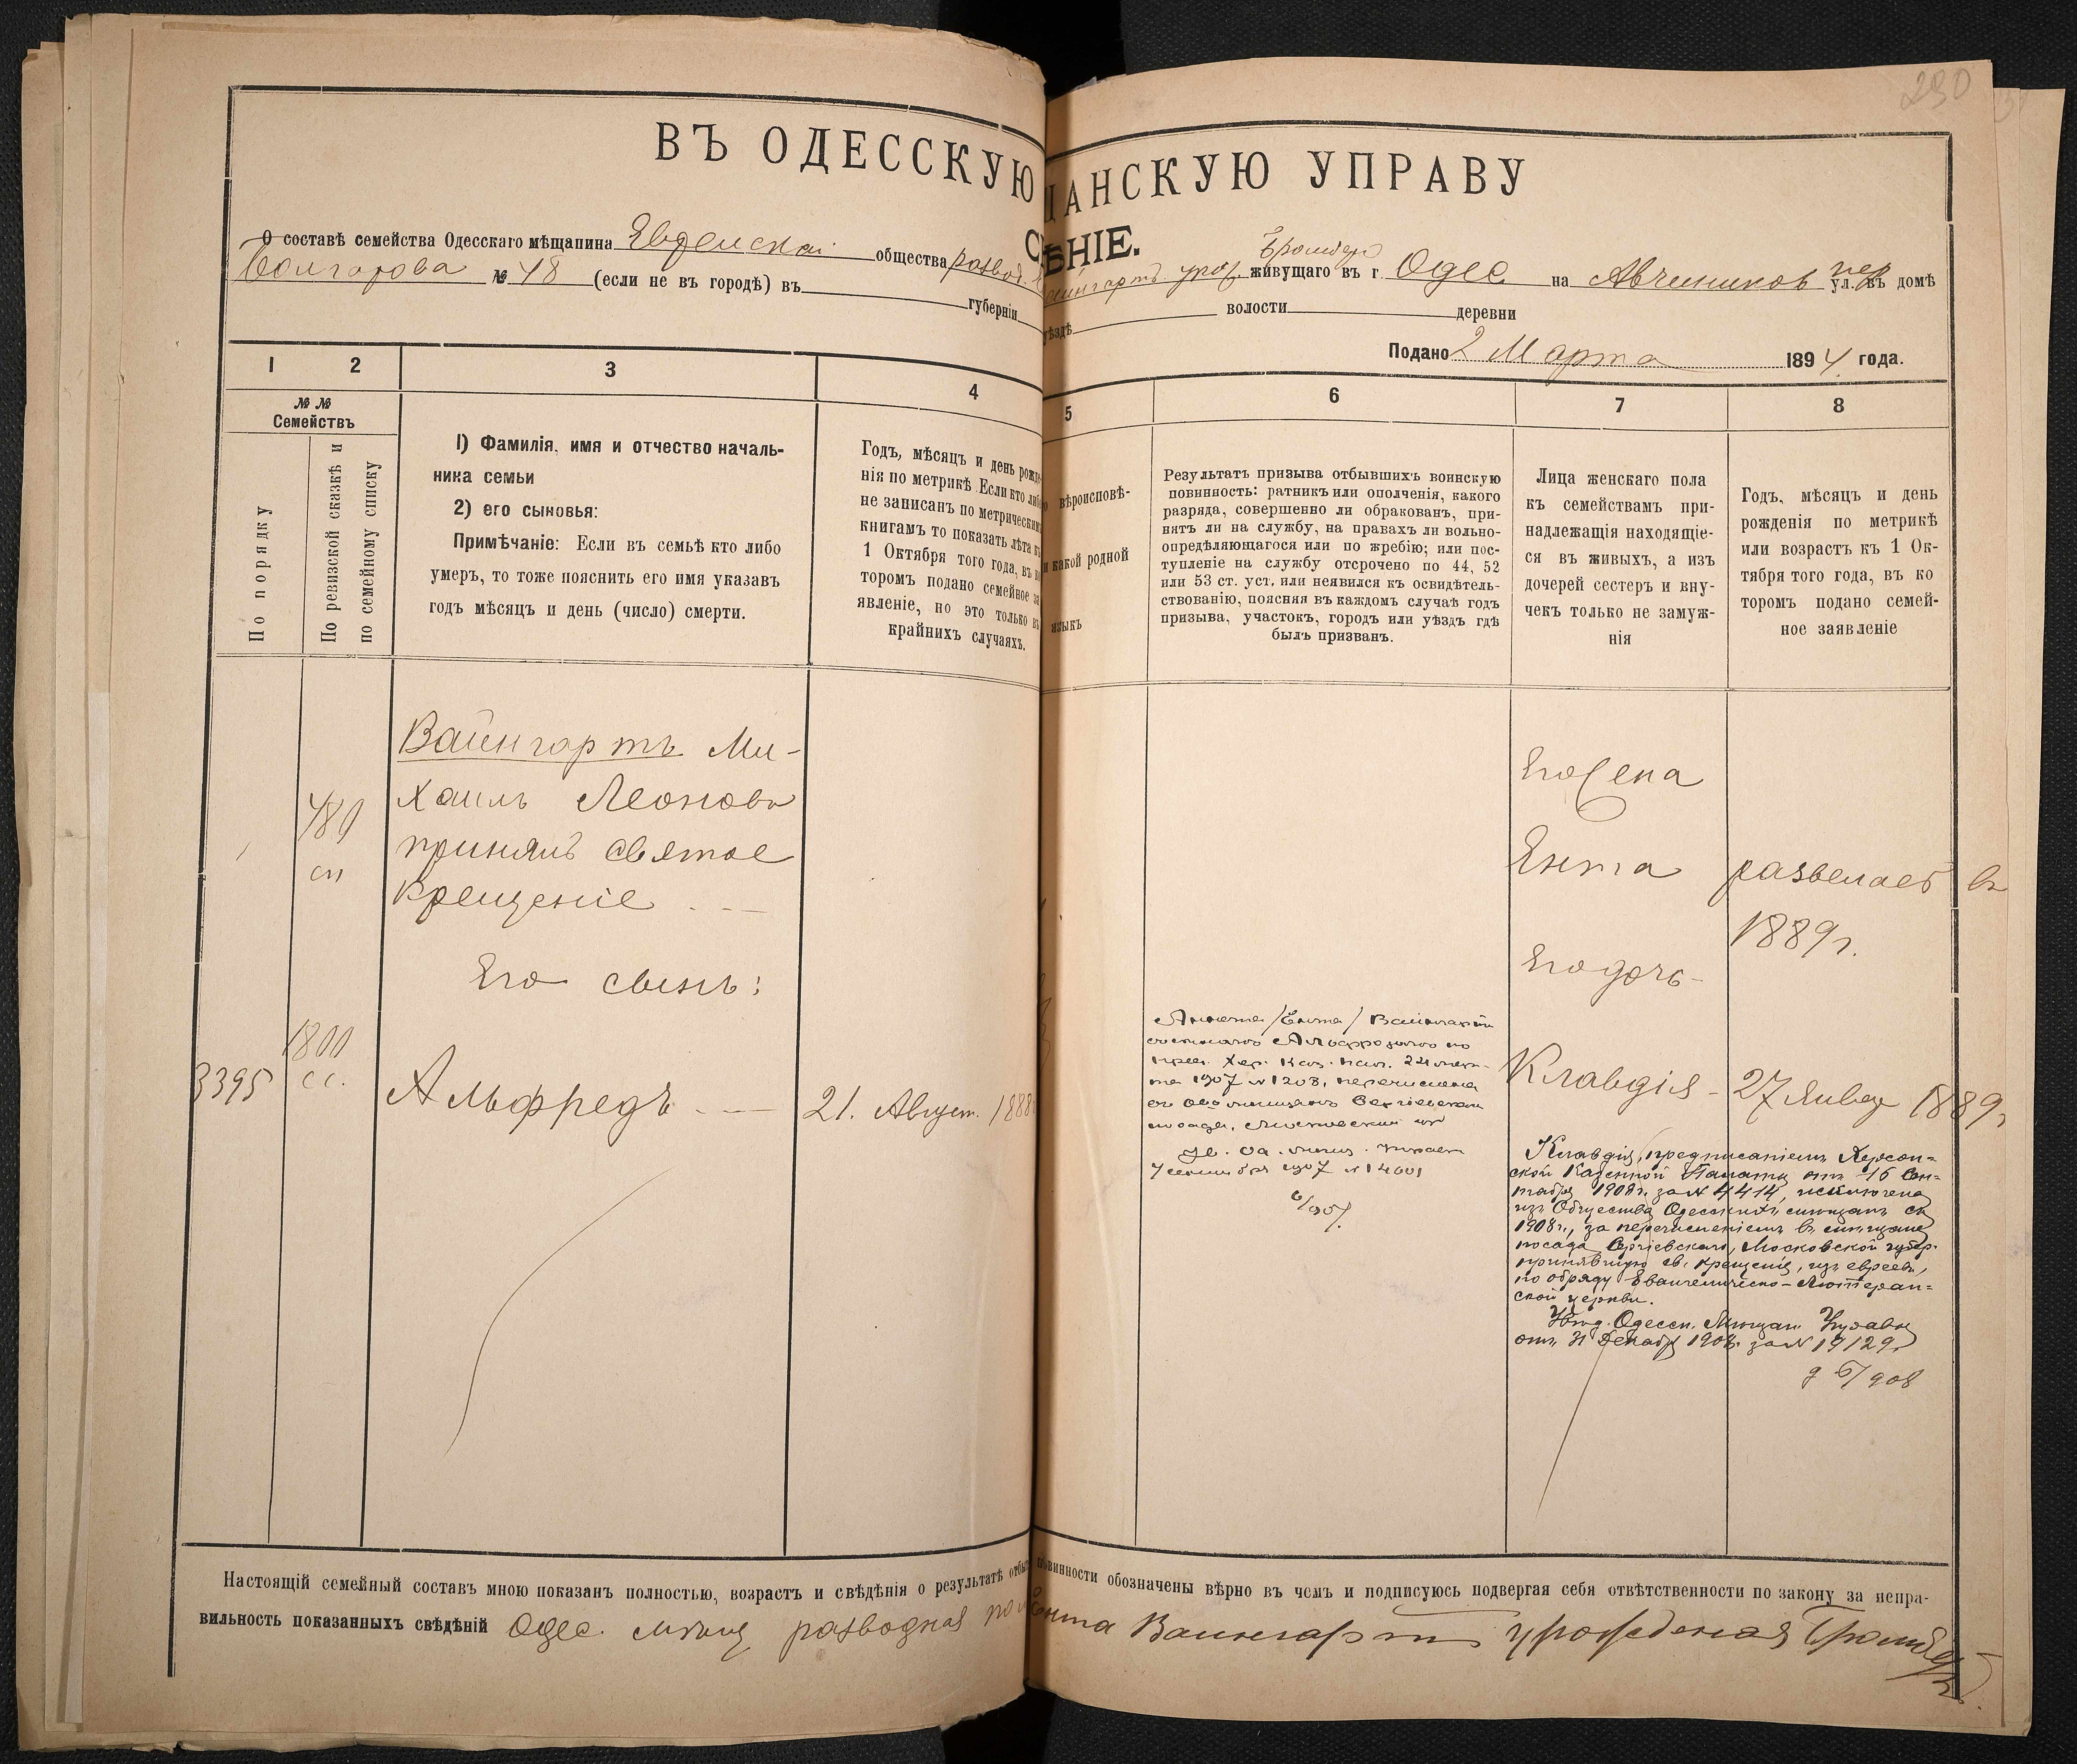 230
ВЪ ОДЕССКУЮ
ЩАНСКУЮ УПРАВУ
ѢНІЕ.
О составѣ семейства Одесскаго мѣщанина Еврейскаго общества развод.
Болгарова № 48 (если не въ городѣ) въ губерніи
уѣздѣ волости деревни
Вайнгартъ урож. живущаго въ г. Одес. на Авчинников пер ул. въ домѣ
Подано 2 Марта 1894 года.
1 2 3 4 5 6 7 8
№ №
Семействъ
По порядку
По ревизской сказкѣ и
по семейному списку
1) Фамилія, имя и отчество началь-
ника семьи
2) его сыновья:
Примѣчаніе: Если въ семьѣ кто либо
умеръ, то тоже пояснить его имя указавъ
годъ мѣсяцъ и день (число) смерти.
Годъ, мѣсяцъ и день рожде-
нія по метрикѣ Если кто либо
не записанъ по метрическимъ
книгамъ то показать лѣта къ
1 Октября того года, въ ко
торомъ подано семейное за
явленіе, но это только въ
крайнихъ случаяхъ.
вѣроисповѣ-
и какой родной
языкъ
Результатъ призыва отбывшихъ воинскую
повинность: ратникъ или ополченія, какого
разряда, совершенно ли обракованъ, при-
нятъ ли на службу, на правахъ ли вольно-
опредѣляющагося или по жребію; или пос-
тупленіе на службу отсрочено по 44, 52
или 53 ст. уст. или неявился къ освидѣтель-
ствованію, поясняя въ каждомъ случаѣ годъ
призыва, участокъ, городъ или уѣздъ гдѣ
былъ призванъ.
Лица женскаго пола
къ семействамъ при-
надлежащія находящіе-
ся въ живыхъ, а изъ
дочерей сестеръ и вну-
чекъ только не замуж-
нія
Годъ, мѣсяцъ и день
рожденія по метрикѣ
или возрастъ къ 1 Ок-
тября того года, въ ко
торомъ подано семей-
ное заявленіе
Вайнгартъ Ми-
хаилъ Леоновъ
принялъ святое
Крещеніе
480
сп
Его сынъ:
3395
1800
сс.
Альфредъ
21. Август. 188
Его жена
Ента
развелась въ
1889 г.
Его дочь
Клавдія - 27 Январ 1889 г.
Аннета /Ента/ Вайнгартъ
пред. Хер. Каз. Пал. 22 мар-
та 1907 № 1208, перечислена
посада, Московской
1907 № 14601
Клавдія, предписаніемъ Херсон-
ской Казенной Палаты отъ 16 Сен-
тября 1908 г. за № 4414, исключена
изъ Общества Одесскихъ мѣщанъ съ
1908 г., за перечисленіемъ въ мѣщане
посада Сергіевскаго, Московской губер.
принявшую св. крещеніе, изъ евреевъ,
по обряду Евангелическо-Лютеран-
ской церкви.
Увѣд. Одесск. Мѣщан. Управы
отъ 31 Декабр 1908 за № 19129
908
Настоящій семейный составъ мною показанъ полностью, возрастъ и свѣдѣнія о результатѣ отбы повинности обозначены вѣрно въ чемъ и подписуюсь подвергая себя отвѣтственности по закону за непра-
вильность показанныхъ свѣдѣній Одес. мѣщ разводная Ента Вайнгартъ урожденая